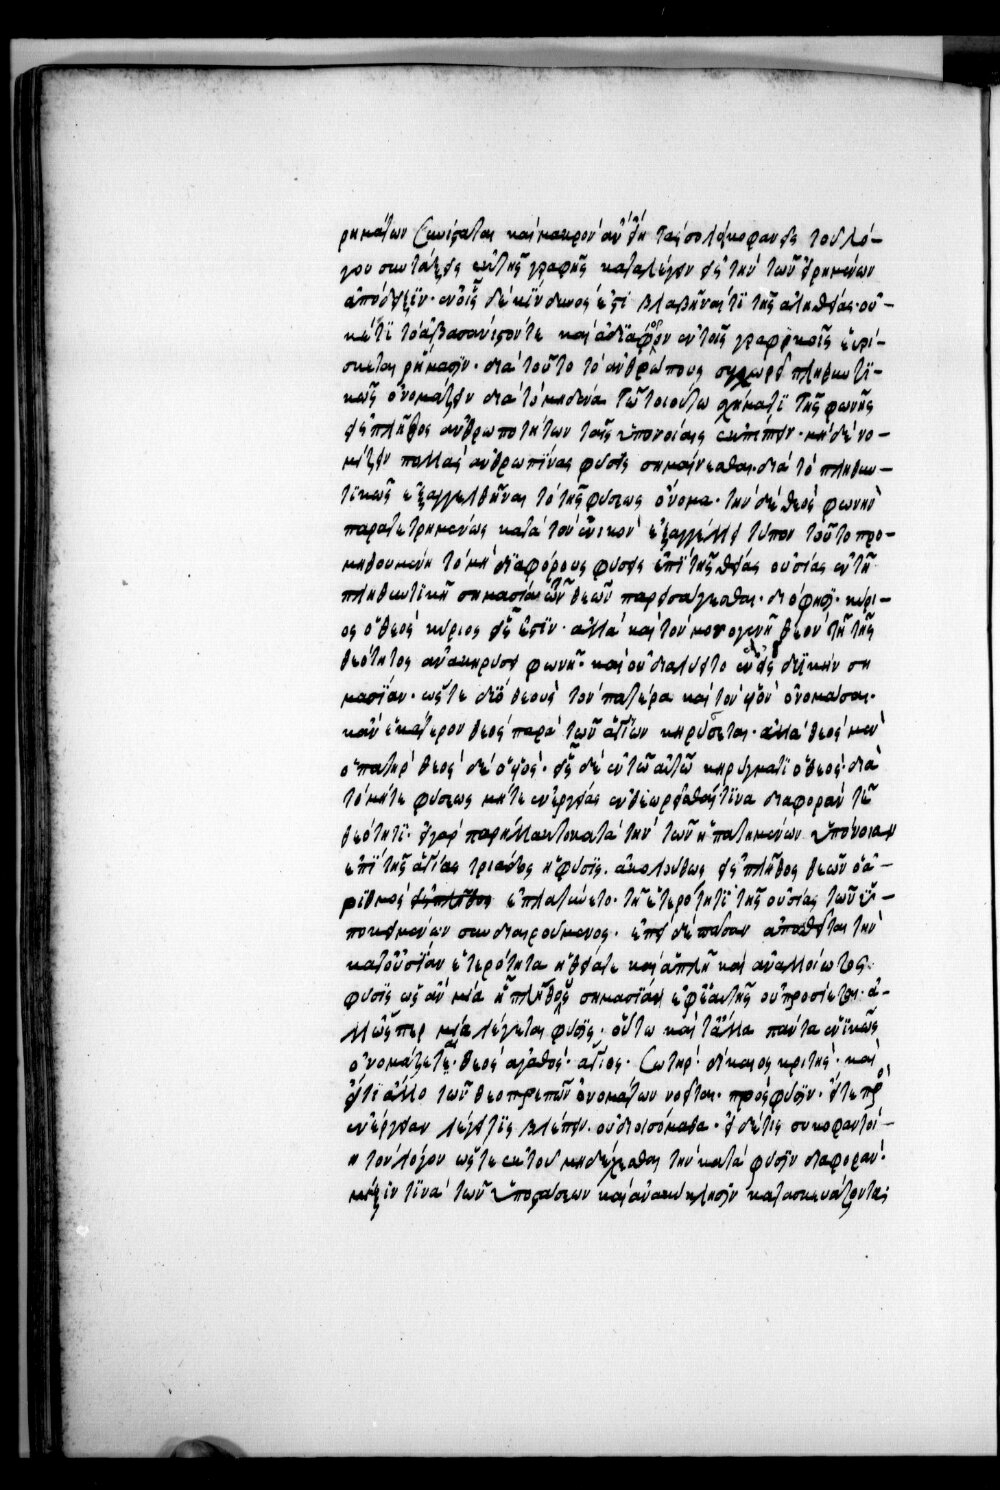 ρημάτων συνίσταται καὶ μακρὸν ἂν εἴη τὰς σολοικοφανεῖς τοῦ λό-
γου συντάξεις ἐκ τῆς γραφῆς καταλέγειν εἰς τὴν τῶν εἰρημένων
ἀπόδειξιν. ἐν οἷς δὲ κίνδυνος ἐστὶ βλαβῆναί τι τῆς ἀληθείας. οὐ-
κέτι τὸ ἀβασανίστόν τε καὶ ἀδιάφορον ἐν ταῖς γραφικαῖς εὑρί-
σκεται ῥήμασιν. διὰ τοῦτο τὸ ἀνθρώπους συγχωρεῖ πληθυντι-
κῶς ὀνομάζειν διὰ τὸ μηδένα τῶ τοιούτω σχήματι τῆς φωνῆς
εἰς πλῆθος ἀνθρωποτήτων ταῖς ὑπονοίαις ἐκπίπτειν. μὴ δὲ νο-
μίζειν πολλὰς ἀνθρωπίνας φύσεις σημαίνεσθαι. διὰ τὸ πληθυν-
τικῶς ἐξαγγελθῆναι τὸ τῆς φύσεως ὄνομα. τὴν δὲ θεὸς φωνὴν
παρατετηρημένως κατὰ τὸν ἑνικὸν ἐξαγγέλλει τύπον τοῦτο προ-
μηθουμένη τὸ μὴ διαφόρους φύσεις ἐπὶ τῆς θείας οὐσίας ἐν τῆ
πληθυντικῆ σημασία τῶν θεῶν παρεισάγεσθαι. διό φησι. κύρι-
ος ὁ θεὸς κύριος εἷς ἐστίν. ἀλλὰ καὶ τὸν μονογενῆ θεὸν τῆ τῆς
θεότητος ἀνακηρύσσει φωνῆ. καὶ οὐ διαλύει τὸ ἓν εἰς δυϊκὴν ση
μασίαν. ὥστε δύο θεοὺς τὸν πατέρα καὶ τὸν υἱὸν ὀνομάσαι.
κἂν ἑκάτερον θεὸς παρὰ τῶν ἁγίων κηρύσσεται. ἀλλὰ θεὸς μὲν
ὁ πατὴρ θεὸς δὲ ὁ υἱός. εἷς δὲ ἐν τῶ αὐτῶ κηρύγματι ὁ θεὸς. διὰ
τὸ μήτε φύσεως μήτε ἐνεργείας ἐνθεωρεῖσθαί τινα διαφορὰν τῆ
θεότητι. εἰ γὰρ παρήλλακτο κατὰ τὴν τῶν ἠπατημένων ὑπόνοιαν
ἐπὶ τῆς ἁγίας τριάδος ἡ φύσις. ἀκολούθως εἰς πλῆθος θεῶν ὁ ἀ-
ριθμὸς εἰς πλῆθος ἐπλατύνετο. τῆ ἑτερότητι τῆς οὐσίας τῶν ὑ-
ποκειμένων συνδιαιρούμενος. ἐπεὶ δὲ πᾶσαν ἀπωθεῖται τὴν
κατ οὐσίαν ἑτερότητα ἡ θεία τε καὶ ἁπλῆ καὶ ἀναλλοίωτος
φύσις ὡς ἂν μία ᾖ πλήθους σημασίαν ἐφ ἑαυτῆς οὐ προσίεται. ἀ-
λλ ὥσπερ μία λέγεται φύσις. οὕτω καὶ τἄλλα πάντα ἑνικῶς
ὀνομάζεται. θεὸς ἀγαθός. ἅγιος. σωτὴρ. δίκαιος κριτὴς. καὶ
εἴ τι ἄλλο τῶν θεοπρεπῶν ὀνομάτων νοεῖται. πρὸς φύσιν. εἴτε πρὸς
ἐνέργειαν λέγει τις βλέπειν. οὐ διοισόμεθα. εἰ δέ τις συκοφαντοί-
η τὸν λόγον ὥστε ἐκ τοῦ μὴ δέχεσθαι τὴν κατὰ φύσιν διαφορὰν.
μίξιν τινὰ τῶν ὑποστάσεων καὶ ἀνακύκλησιν κατασκευάζοντας